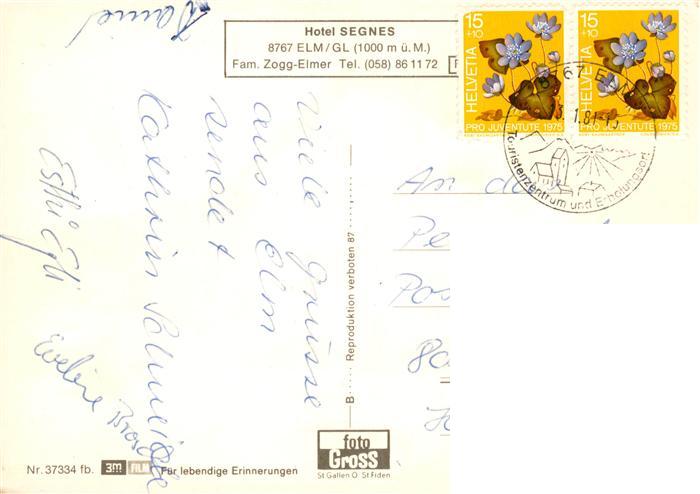 Hotel SEGNES
8767 ELM/GL (1000 m ü. M.)
Fam. Zogg-Elmer Tel. (058) 86 11 72
15
+10
HELVETIA
PRO JUVENTUTE 1975
15
+10
HELVETIA
PRO JUVENTUTE 1975
8767 ELM
1.81
Touristenzentrum und Erholungsort
Daniel
Viele Grüsse
aus Elm
sendet
Kathrin
Esthi Egli
Eveline
An
Pe
Pos
B
Reproduktion verboten 87
foto
Gross
St Gallen O. St Fiden
Nr. 37334 fb. 3m FILM Für lebendige Erinnerungen